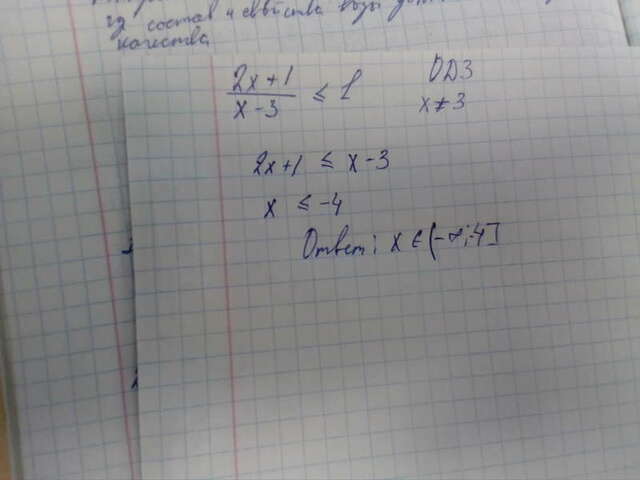 из состав и свойства воды
качества
2x+1 / x-3 ≤ 1 ОДЗ
x≠3
2x+1 ≤ x-3
x ≤ -4
Ответ: x ∈ (-∞;-4]